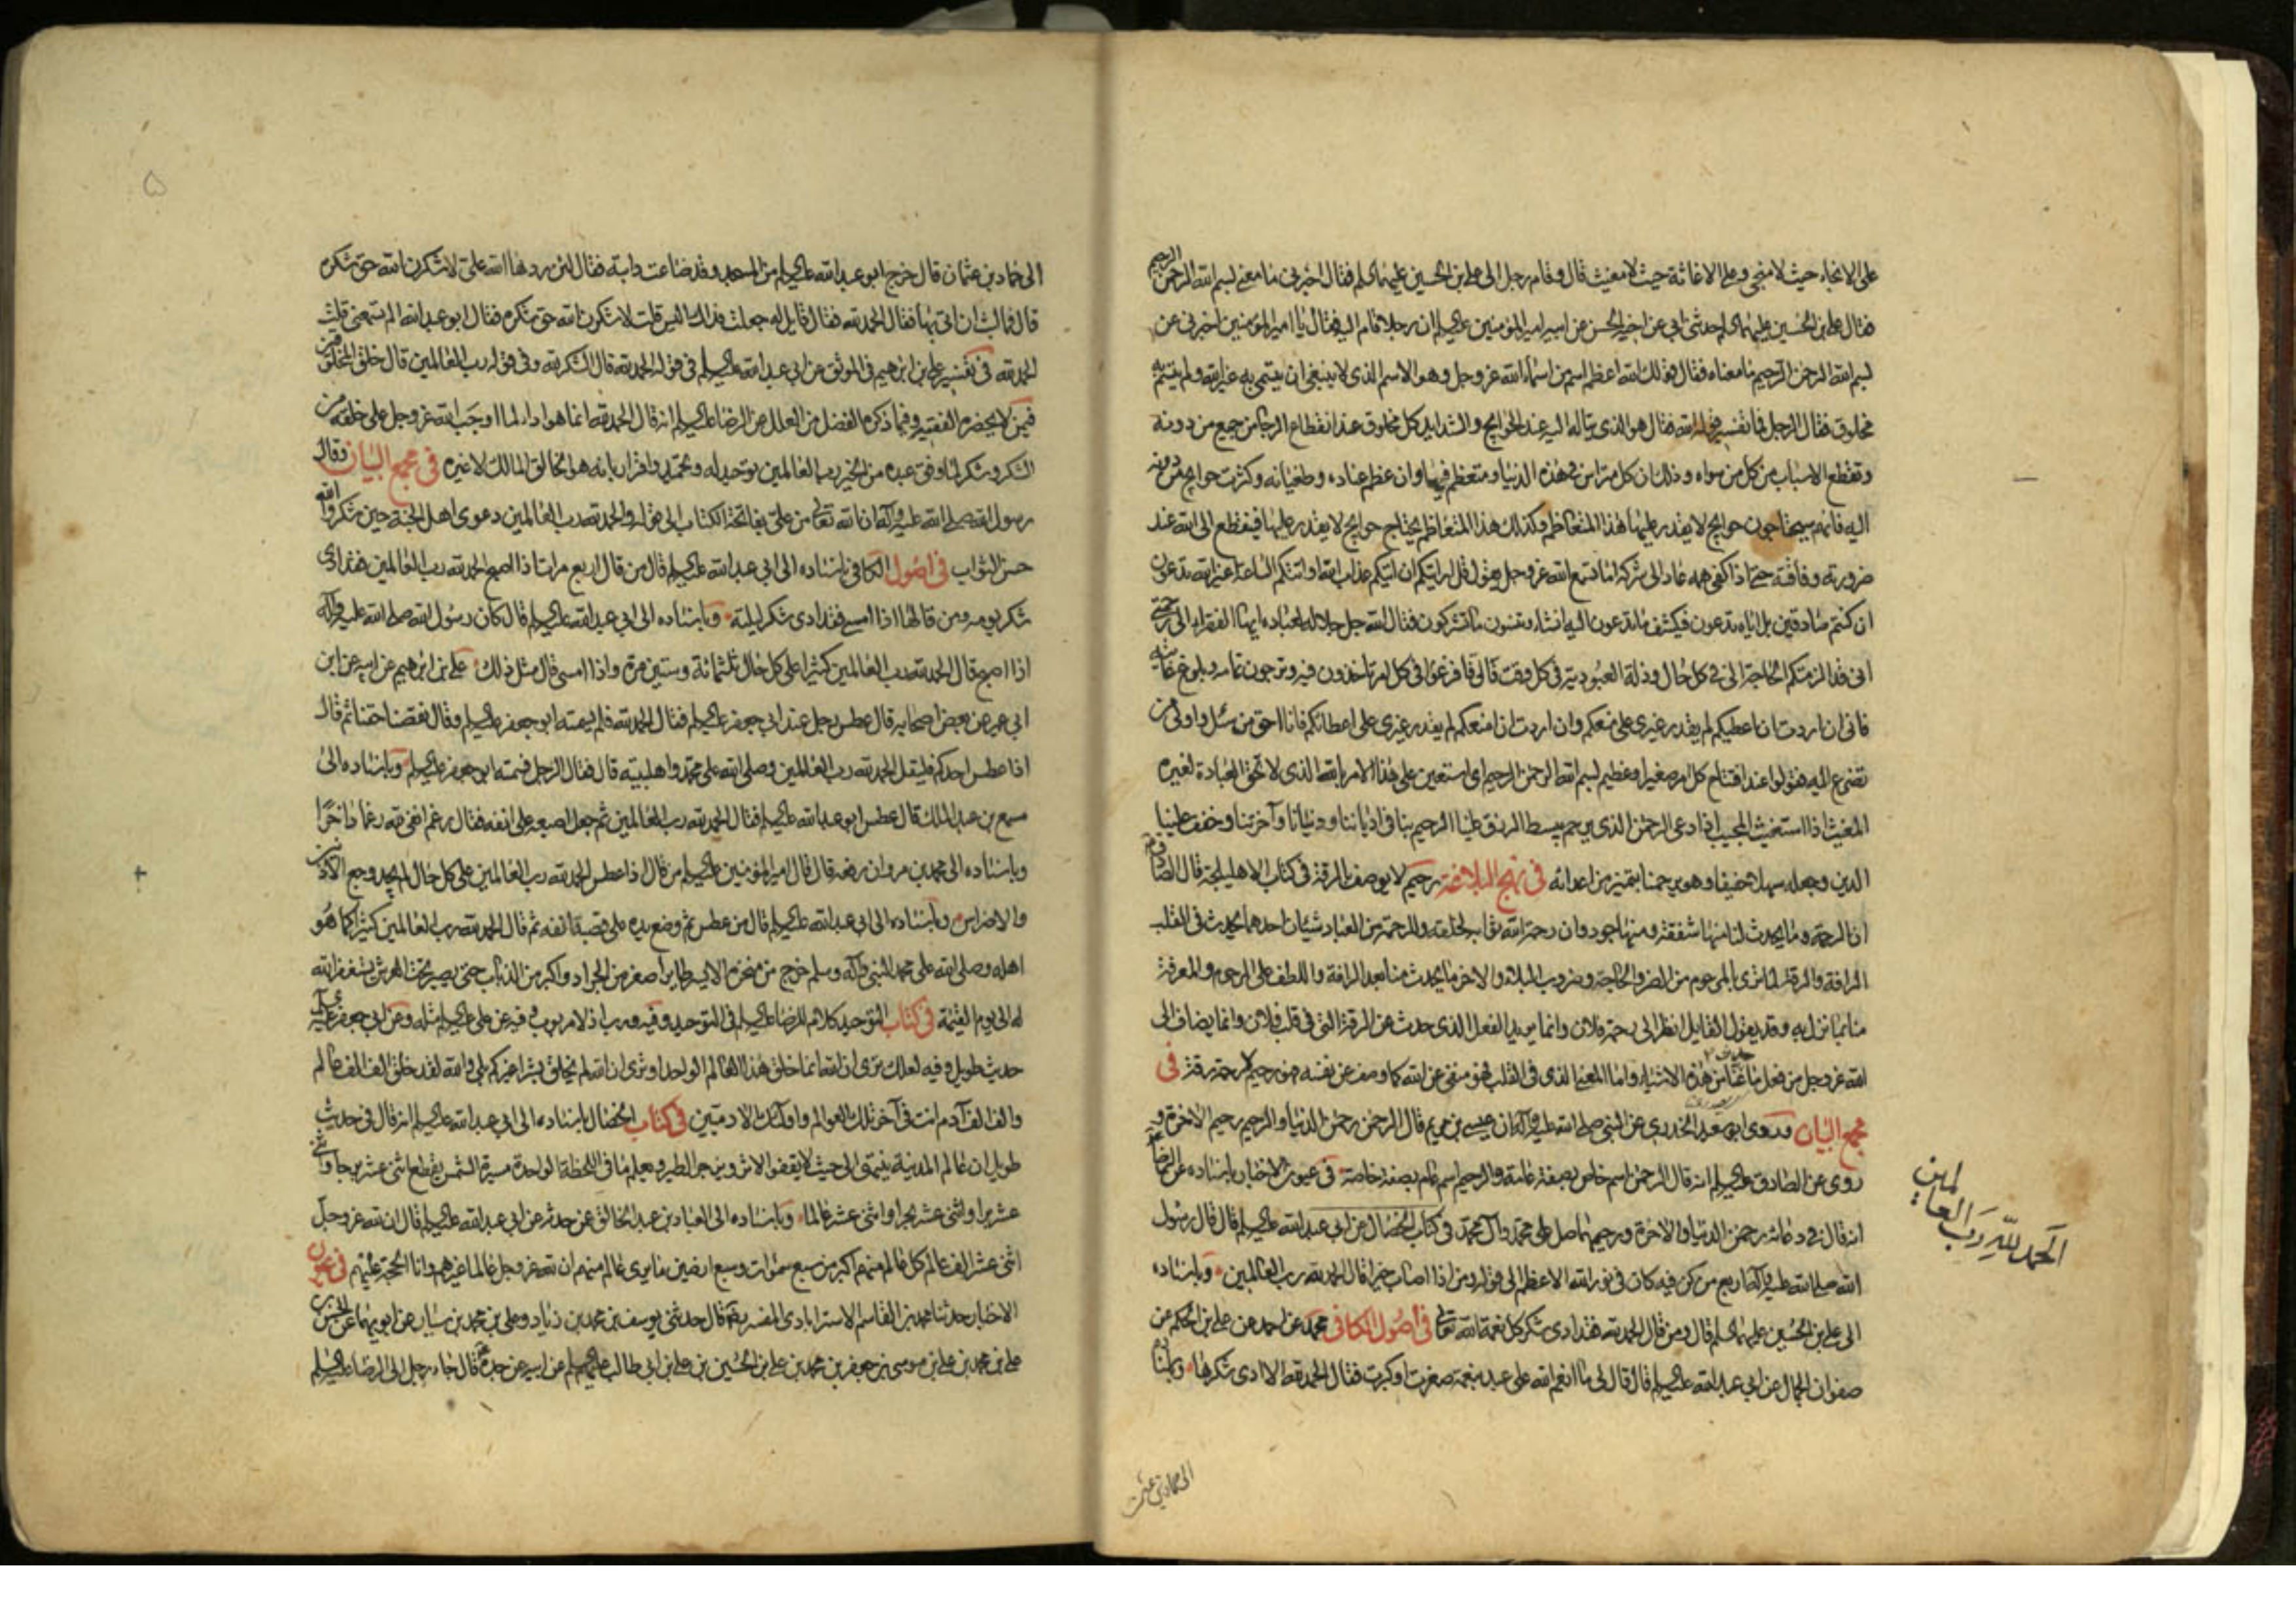 على الانجاء حيث لا منجى وعلى الاغاثة حيث لا مغيث قال وقام رجل الى على بن الحسين عليهما السلام فقال اخبرنى ما معنى بسم الله الرحمن الرحيم
فقال على بن الحسين عليهما السلام حدثنى ابى عن اخيه الحسن عن ابيه امير المؤمنين عليه السلام ان رجلا قام اليه فقال يا امير المؤمنين اخبرنى عن
بسم الله الرحمن الرحيم ما معناه فقال ان قولك الله اعظم اسم من اسماء الله عز وجل وهو الاسم الذى لا ينبغى ان يتسمى به غير الله ولم يتسم به
مخلوق فقال الرجل فما تفسير قوله الله فقال هو الذى يتاله اليه عند الحوايج والشدايد كل مخلوق عند انقطاع الرجا من جميع من دونه
وتقطع الاسباب من كل من سواه وذلك ان كل متراس فى هذه الدنيا ومتعظم فيها وان عظم غناءه وطغيانه وكثرت حوايج من دونه
اليه فانهم سيحتاجون حوايج لا يقدر عليها هذا المتعاظم وكذلك هذا المتعاظم يحتاج حوايج لا يقدر عليها فينقطع الى الله عند
ضرورته وفاقته حتى اذا كفى همه عاد الى شركه اما تسمع الله عز وجل يقول قل ارايتكم ان اتيكم عذاب الله او اتتكم الساعة اغير الله تدعون
ان كنتم صادقين بل اياه تدعون فيكشف ما تدعون اليه ان شاء وتنسون ما تشركون فقال الله جل جلاله لعباده ايها الفقراء الى رحمتى
انى قد الزمتكم الحاجة الى فى كل حال وذلة العبودية فى كل وقت فالى فافزعوا فى كل امر تاخذون فيه وترجون تمامه وبلوغ غايته
فانى ان اردت ان اعطيكم لم يقدر غيرى على منعكم وان اردت ان امنعكم لم يقدر غيرى على اعطائكم فانا احق من سئل واولى من
تضرع اليه فقولوا عند افتتاح كل امر صغير او عظيم بسم الله الرحمن الرحيم اى استعين على هذا الامر بالله الذى لا تحق العبادة لغيره
المغيث اذا استغيث المجيب اذا دعى الرحمن الذى يرحم ببسط الرزق علينا الرحيم بنا فى ادياننا ودنيانا وآخرتنا وخفف علينا
الدين وجعله سهلا خفيفا وهو يرحمنا بتميزنا من اعدائه فى نهج البلاغة رحيم لا يوصف بالرقة فى كتاب الاهليلجة قال الصادق
ان الرحمة وما يحدث لنا منها شفقة ومنها جود وان رحمة الله ثوابه لخلقه والرحمة من العباد شيئان احدهما يحدث فى القلب
الرافة والرقة لما يرى بالمرحوم من الضر والحاجة وضروب البلاء والاخر ما يحدث منا بعد الرافة واللطف على المرحوم والمعرفة
منا بما نزل به وقد يقول القايل انظر الى رحمة فلان وانما يريد الفعل الذى حدث عن الرقة التى فى قلب فلان وانما يضاف الى
الله عز وجل من فعل ما حدث عنا من هذه الاشياء واما المعنى الذى فى القلب فهو منفى عن الله كما وصف عن نفسه فهو رحيم لا رحمة رقة فى
مجمع البيان وروى ابو سعيد الخدرى عن النبى صلى الله عليه وآله ان عيسى بن مريم قال الرحمن رحمن الدنيا والرحيم رحيم الاخرة و
روى عن الصادق عليه السلام انه قال الرحمن اسم خاص بصفة عامة والرحيم اسم عام بصفة خاصة فى عيون الاخبار باسناده عن الرضا
انه قال فى دعائه رحمن الدنيا والاخرة ورحيمهما صل على محمد وآل محمد فى كتاب الخصال عن ابى عبد الله عليه السلام قال قال رسول
الله صلى الله عليه وآله اربع من كن فيه كان فى نور الله الاعظم الى قوله ومن اذا اصاب خيرا قال الحمد لله رب العالمين وباسناده
الى على بن الحسين عليهما السلام قال ومن قال الحمد لله فقد ادى شكر كل نعمة الله تعالى فى اصول الكافى محمد عن احمد عن على بن الحكم عن
صفوان الجمال عن ابى عبد الله عليه السلام قال قال لى ما انعم الله على عبد بنعمة صغرت او كبرت فقال الحمد لله الا ادى شكرها وباسناده
الحمد لله رب العالمين
الى حماد بن عثمن
۵
الى حماد بن عثمان قال خرج ابو عبد الله عليه السلام من المسجد وقد ضاعت دابته فقال لئن ردها الله على لاشكرن الله حق شكره
قال فما لبث ان اتى بها فقال الحمد لله فقال قايل له جعلت فداك اليس قلت لاشكرن الله حق شكره فقال ابو عبد الله الم تسمعنى قلت
الحمد لله فى تفسير على بن ابرهيم فى الموثق عن ابى عبد الله عليه السلام فى قوله الحمد لله قال الشكر لله وفى قوله رب العالمين قال خلق المخلوقين
فيمن لا يحضره الفقيه وفيما ذكره الفضل من العلل عن الرضا عليه السلام انه قال الحمد لله انما هو اداء لما اوجب الله عز وجل على خلقه من
الشكر وشكر لما وفق عبده من الخير رب العالمين توحيد له وتحميد واقرار بانه هو الخالق المالك لا غيره فى مجمع البيان وقال
رسول الله صلى الله عليه وآله ان الله تعالى من على بفاتحة الكتاب الى قوله والحمد لله رب العالمين دعوى اهل الجنة حين شكروا الله
حسن الثواب فى اصول الكافى باسناده الى ابى عبد الله عليه السلام قال من قال اربع مرات اذا اصبح الحمد لله رب العالمين فقد ادى
شكر يومه ومن قالها اذا امسى فقد ادى شكر ليلته وباسناده الى ابى عبد الله عليه السلام قال كان رسول الله صلى الله عليه وآله
اذا اصبح قال الحمد لله رب العالمين كثيرا على كل حال ثلثمائة وستين مرة واذا امسى قال مثل ذلك على بن ابرهيم عن ابيه عن ابن
ابى عمير عن بعض اصحابه قال عطس رجل عند ابى جعفر عليه السلام فقال الحمد لله فلم يسمته ابو جعفر عليه السلام وقال نقصنا حقنا ثم قال
اذا عطس احدكم فليقل الحمد لله رب العالمين وصلى الله على محمد واهل بيته قال فقال الرجل فسمته ابو جعفر عليه السلام وباسناده الى
مسمع بن عبد الملك قال عطس ابو عبد الله عليه السلام فقال الحمد لله رب العالمين ثم جعل اصبعه على انفه فقال رغم انفى لله رغما داخرا
وباسناده الى محمد بن مروان رفعه قال قال امير المؤمنين عليه السلام من قال اذا عطس الحمد لله رب العالمين على كل حال لم يجد وجع الاذنين
والاضراس وباسناده الى ابى عبد الله عليه السلام قال من عطس ثم وضع يده على قصبة انفه ثم قال الحمد لله رب العالمين كثيرا كما هو
اهله وصلى الله على محمد النبى وآله وسلم خرج من منخره الايسر طاير اصغر من الجراد واكبر من الذباب حتى يصير تحت العرش يستغفر الله
له الى يوم القيمة فى كتاب التوحيد كلام للرضا عليه السلام فى التوحيد وفيه ورب اذ لا مربوب وفيه عن على عليه السلام مثله وعن ابى جعفر عليه السلام
حديث طويل وفيه لعلك ترى ان الله انما خلق هذا العالم الواحد او ترى ان الله لم يخلق بشرا غيركم بلى والله لقد خلق الف الف عالم
والف الف آدم انت فى آخر تلك العوالم واولئك الادميين فى كتاب الخصال باسناده الى ابى عبد الله عليه السلام انه قال فى حديث
طويل ان عالم المدينة ينتهى الى حيث لا يقفو الاثر ويزجر الطير ويعلم ما فى اللحظة الواحدة مسيرة الشمس يقطع اثنى عشر برجا واثنى
عشر برا واثنى عشر بحرا واثنى عشر عالما وباسناده الى العباد بن عبد الخالق عمن حدثه عن ابى عبد الله عليه السلام قال ان لله عز وجل
اثنى عشر الف عالم كل عالم منهم اكبر من سبع سموات وسبع ارضين ما يرى عالم منهم ان لله عز وجل عالما غيرهم وانا الحجة عليهم فى عيون
الاخبار حدثنا محمد بن القاسم الاسترابادى المفسر قال حدثنى يوسف بن محمد بن زياد وعلى بن محمد بن سيار عن ابويهما عن الحسن بن
على بن محمد بن على بن موسى بن جعفر بن محمد بن على بن الحسين بن على بن ابى طالب عليهم السلام عن ابيه عن جده قال جاء رجل الى الرضا عليه السلام